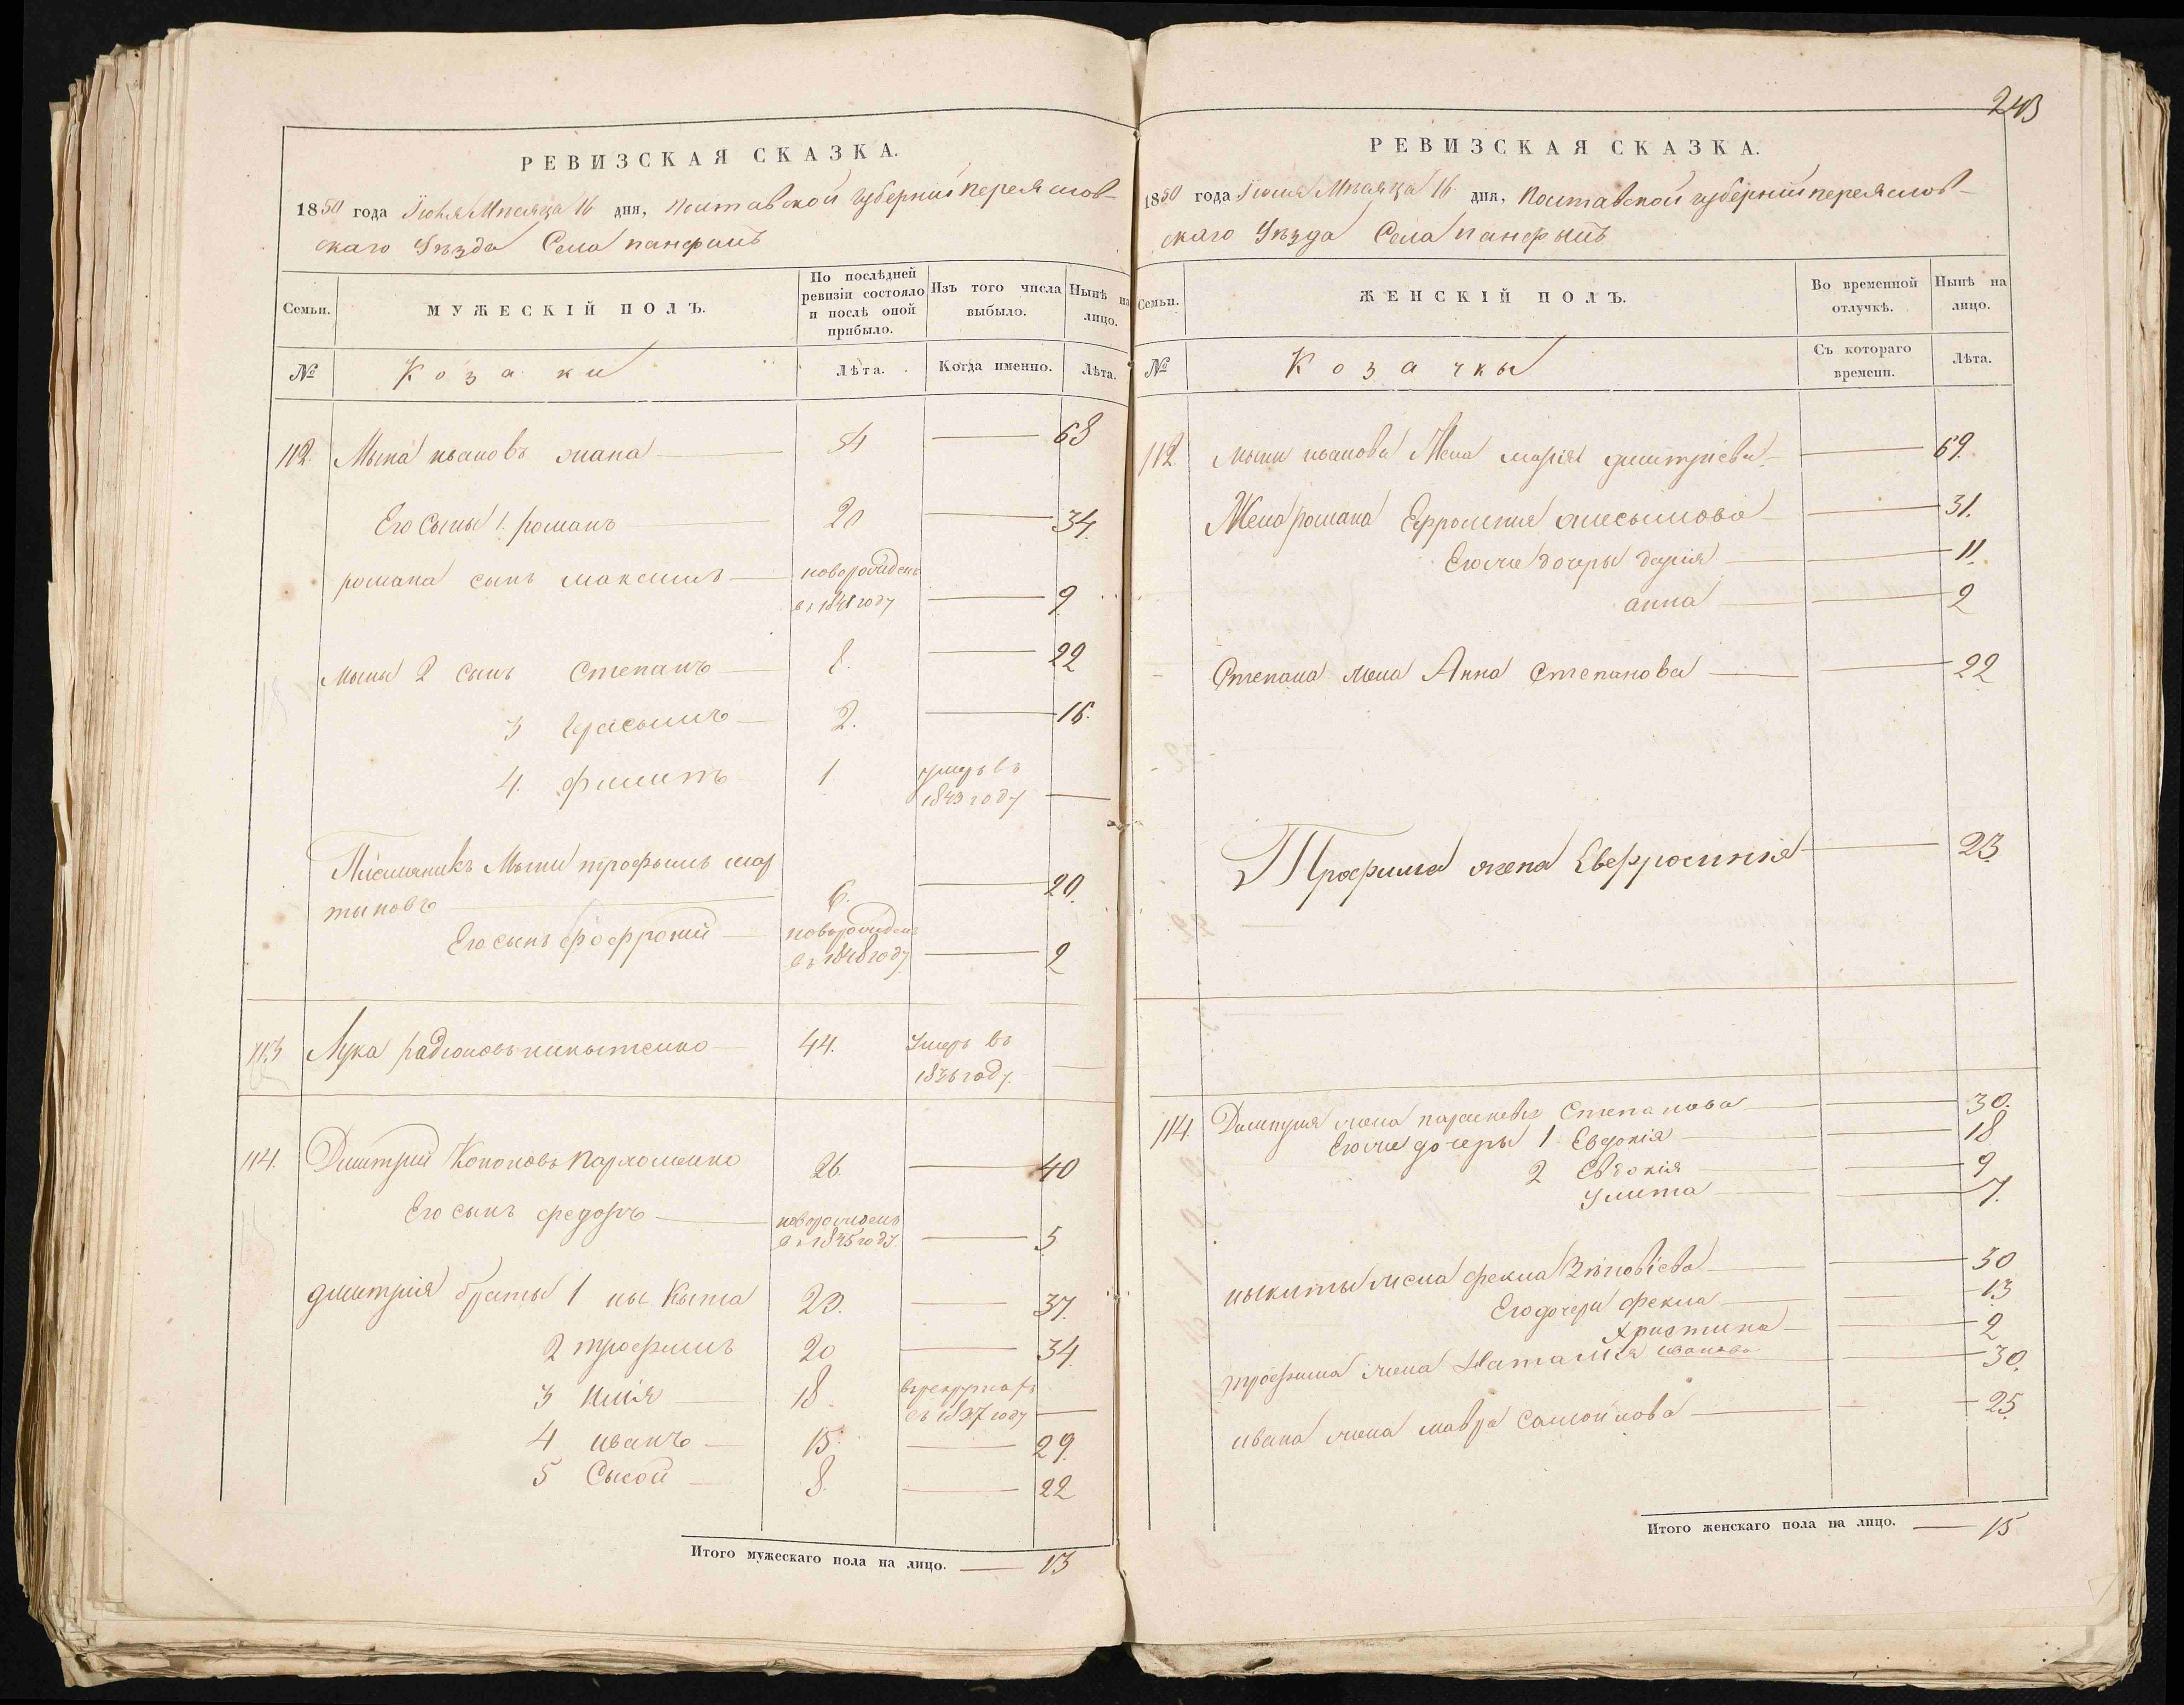 РЕВИЗСКАЯ СКАЗКА.
1850 года Іюля Месяца 16 дня, Полтавской губерніи переяслов-
скаго Уѣзда Села панфилъ
Семьи.
МУЖЕСКІЙ ПОЛЪ.
По послѣдней ревизіи состояло и послѣ оной прибыло.
Изъ того числа выбыло.
Нынѣ на лицо.
№
Козаки
Лѣта.
Когда именно.
Лѣта.
112. Мына 54 68
Его Сыны 1. романъ 20 34.
романа сынъ максимъ новорожденъ
въ 1841 году 9
Мыны 2 сынъ Степанъ 8. 22
3 Герасымъ 2. 16.
4. филипъ 1 умеръ въ
1843 году
Мыны трофымъ мар
тыновъ 6. 20.
Его сынъ новорожденъ
въ 1848 году 2
113 Лука радіоновъ никытенко 44. Умеръ въ
1836 году.
114. Дмитрий Кононовъ пархоменко 26 40
Его сынъ федоръ новорожденъ
въ 1845 году. 5
дмитрія браты 1 ныкыта 23. 37.
2 трофимъ 20 34.
3 илія 18. в рекрутахъ
съ 1837 году
4 иванъ 15. 29.
5 Сысой 8. 22
Итого мужескаго пола на лицо. 13
243
РЕВИЗСКАЯ СКАЗКА.
1850 года Іюля Месяца 16 дня, Полтавской губерніи переяслов-
скаго Уѣзда Села панфылъ
Семьи.
ЖЕНСКІЙ ПОЛЪ.
Во временной отлучкѣ.
Нынѣ на лицо.
№
Козачкы
Съ котораго времени.
Лѣта.
112. мыны жена марія дмитріева 69.
Жена романа Ефросинія 31.
Ею же дочеры дарія 11.
анна 2
Степана жена Анна Степанова 22
Трофима жена Евфросинія 23
114. Дмитрия жена параскева Степанова 30.
Ею же дочеры 1 Евдокія 18
2 Евдокія 9
Улита 7.
ныкиты жена фекла 30
Его дочери фекла 13
Христина 2
трофима жена Наталія иванова 30.
ивана жена мавра Самойлова 25
Итого женскаго пола на лицо. 15